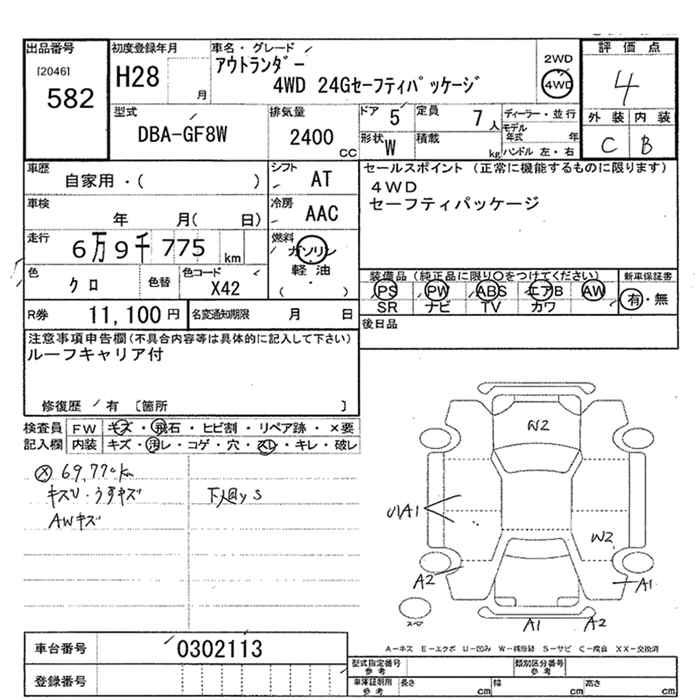 出品番号
[2046]
582
初度登録年月
H28
月
車名・グレード
アウトランダー
4WD 24Gセーフティパッケージ
2WD
4WD
評価点
4
外装 内装
C B
型式
DBA-GF8W
排気量
2400
CC
ドア 5
定員 7 人
形状 W
積載 kg
ディーラー・並行
モデル年式 年
ハンドル 左・右
車歴
自家用・( )
シフト
AT
車検
年 月( 日)
冷房
AAC
走行
6万9千775 km
燃料
ガソリン
軽油
( ・ )
色
クロ
色替
色コード
X42
R券
11,100 円
名変通知期限 月 日
セールスポイント (正常に機能するものに限ります)
4WD
セーフティパッケージ
装備品 (純正品に限り○をつけてください)
PS PW ABS エアB AW
SR ナビ TV カワ
新車保証書
有・無
後日品
注意事項申告欄(不具合内容等は具体的に記入して下さい)
ルーフキャリア付
修復歴 有 [箇所 ]
検査員記入欄
FW キズ・飛石・ヒビ割・リペア跡・×要
内装 キズ・汚レ・コゲ・穴・スレ・キレ・破レ
69,77 km
キズ・うすキズ
AWキズ
下廻りS
W2
A1
W2
A2
A1
A1
A2
スペア
A-キズ E-エクボ U-凹み W-補修跡 S-サビ C-腐食 XX-交換済
車台番号
0302113
登録番号
型式指定番号
参考
類別区分番号
参考
車庫証明用
参考
長さ cm
幅 cm
高さ cm